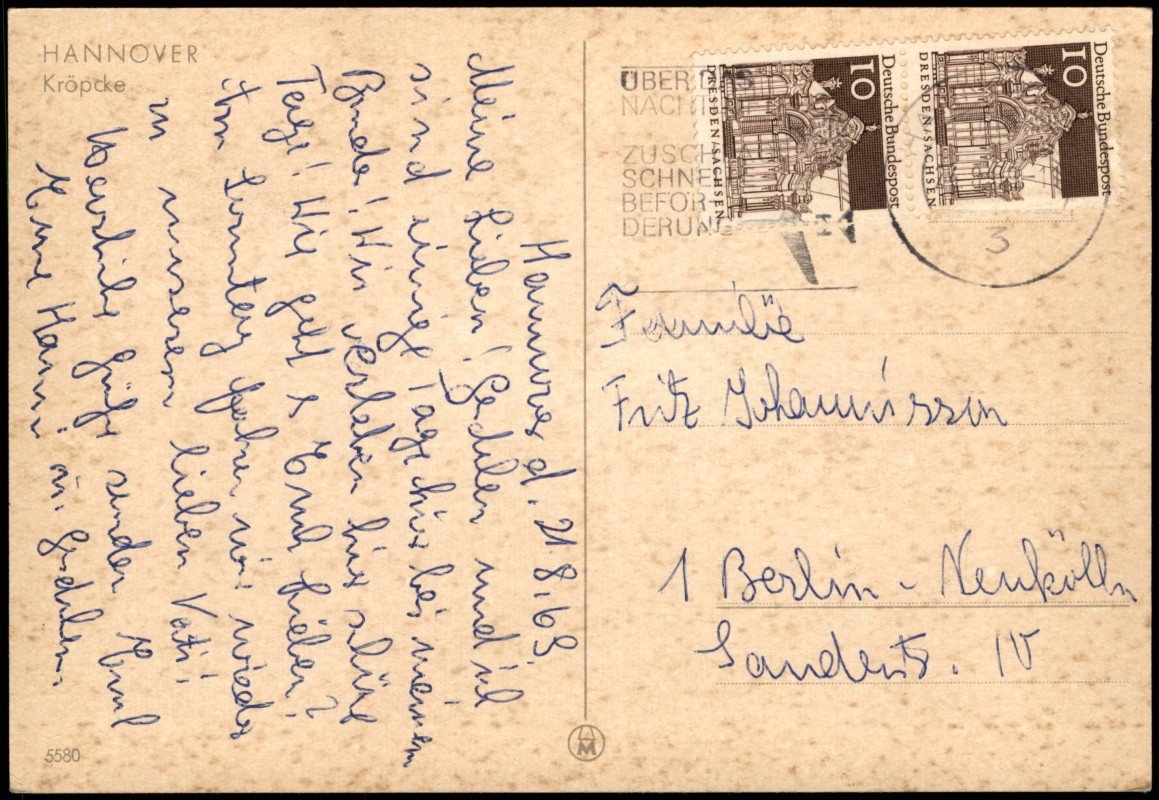 HANNOVER
Kröpcke
Hannover d. 21.8.69.
Meine Lieben! Gudlen und ich
sind einige Tage hier bei meinem
Bruder! Wir verleben hier schöne
Tage! Wie geht es Euch Lieben?
Am Sonntag fahren wir wieder
zu unserem lieben Vati!
Herzliche Grüße senden Euch
Eure Hanni u. Gudlen.
5580
ÜBER
NACHT
ZUSCH
SCHNE
BEFÖR-
DERUNG
10
Deutsche Bundespost
DRESDEN/SACHSEN
10
Deutsche Bundespost
DRESDEN/SACHSEN
3
Familie
Fritz Johannisson
1 Berlin - Neukölln
Sanderstr. 10